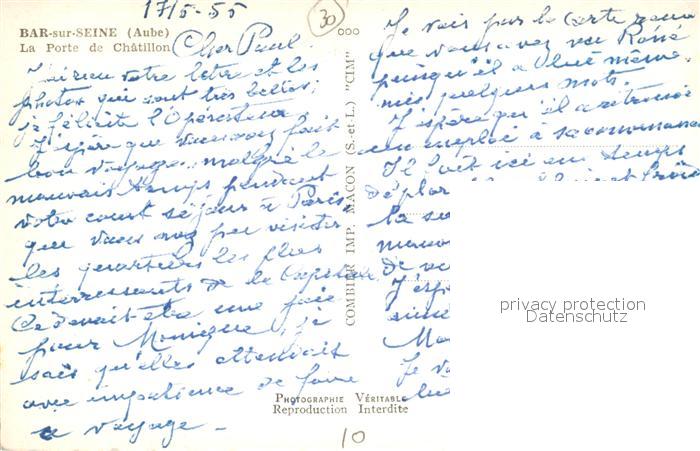 17/5-55
30
BAR-sur-SEINE (Aube)
La Porte de Châtillon
Cher Paul.
J'ai reçu votre lettre et les
photos qui sont très belles;
je félicite l'Opérateur
J'espère que vous avez fait
bon voyage, malgré le
mauvais temps pendant
votre court séjour à Paris
que vous avez pu visiter
les quartiers les plus
interressants de la Capitale
Ce devait être une joie
pour Monique, je
sais qu'elles attendait
avec impatience de faire
ce voyage -
COMBIER IMP. MACON (S.-et-L.) "CIM"
Je vois par la carte
que vous avez vu René
puisqu'il a lui même
mis quelques mots.
J'espère qu'il a retrouvé
un emploi à sa convenance
Il fait ici un temps
déplor
la
mauv
de
J'esp
Je
PHOTOGRAPHIE VÉRITABLE
Reproduction Interdite
10
privacy protection
Datenschutz